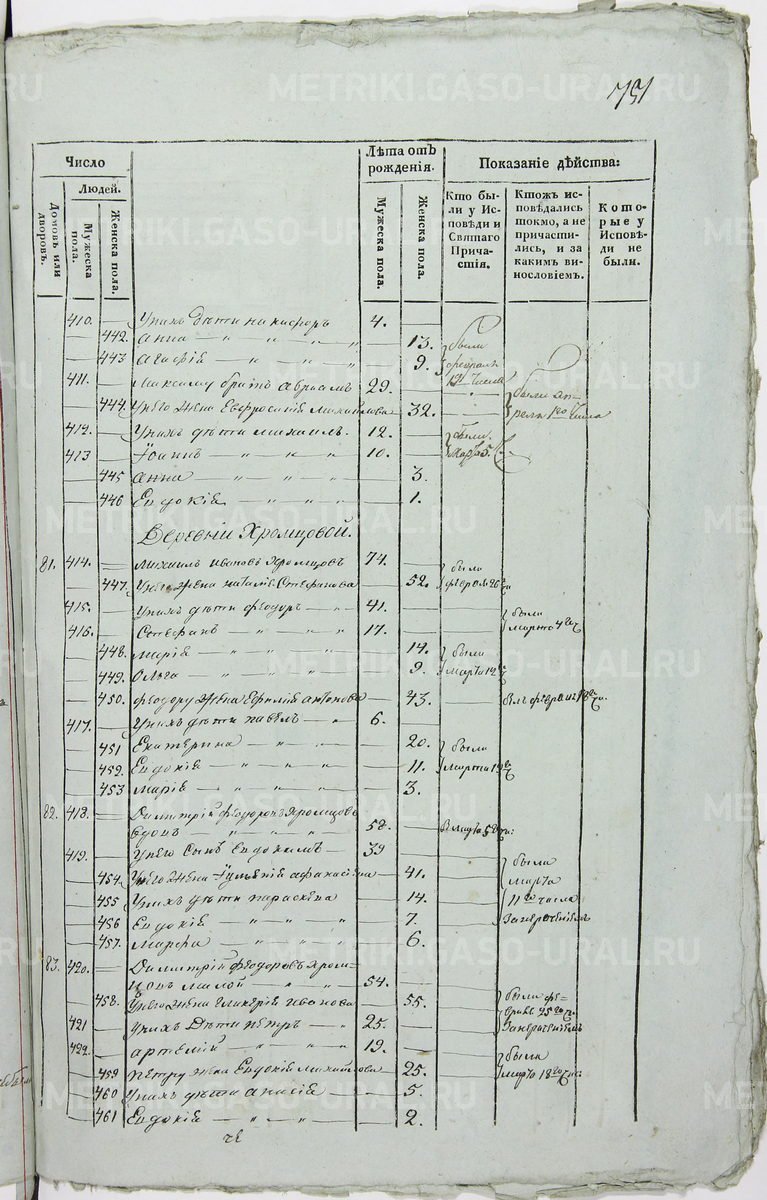 751
Число
Лѣта отъ рожденія.
Показаніе дѣйства:
Людей.
Домовъ или дворовъ.
Мужеска пола.
Женска пола.
Мужеска пола.
Женска пола.
Кто были у Исповѣди и Святаго Причастія.
Ктожъ исповѣдались токмо, а не причастились, и за какимъ винословіемъ.
Которые у Исповѣди не были.
410. — Унихъ дѣти никифоръ 4. —
— 442. анна — " — " 13. были
— 443 агафія — " — " 9. февраля
411. — максиму братъ авраамъ 29. —
— 444. Унего жена Евфросинія михайлова 32. — были апреля 1го числа
412. — Унихъ дѣти михаилъ. 12. — были
413 — Іоаннъ — " — " 10. — мар. 5.
— 445 анна " — " — 3.
— 446 Евдокія — " — " 1.
Деревни Хромцовой.
81. 414. — михаилъ ивановъ Хромцовъ 74. — были
— 447. Унего жена наталія Стефанова — 52. феврал 26
415. — Унихъ дѣти феодоръ — " 41. — были
416. — Стефанъ — " — " 17. — марта 4
— 448. марія — " — " 14. были
— 449. Ольга — " — " 9. марта 14
— 450. феодору жена Ефимія антонова — 43. —
417. — Унихъ дѣти павелъ — " 6. —
— 451 Екатерина — " — 20. были
— 452. Евдокія — " — " 11. марта
— 453 марія — " — " 3.
82. 418. — Димитрій феодоровъ Хромцовъ
вдовъ — " — " 58. — марта 5
419. — Унего Сынъ Евдокимъ — 39 — были
— 454. Унего жена Іуліанія афанасіева — 41. марта
— 455 Унихъ дѣти параскева — 14. 11го числа
— 456 Евдокія " " " — 7.
— 457. марфа " " " — 6.
83. 420. — Димитрій феодоровъ Хромцовъ малой — " 54. —
— 458. Унего жена гликерія иванова — 55. были февраля 25го
421 — Унихъ дѣти петръ — " 25. —
422. — артемій " " 19. — были
— 459 петру жена Евдокія михайлова — 25. марта 18го
— 460 Унихъ дѣти анисія — 5.
— 461 Евдокія — " — " 2.
METRIKI.GASO-URAL.RU